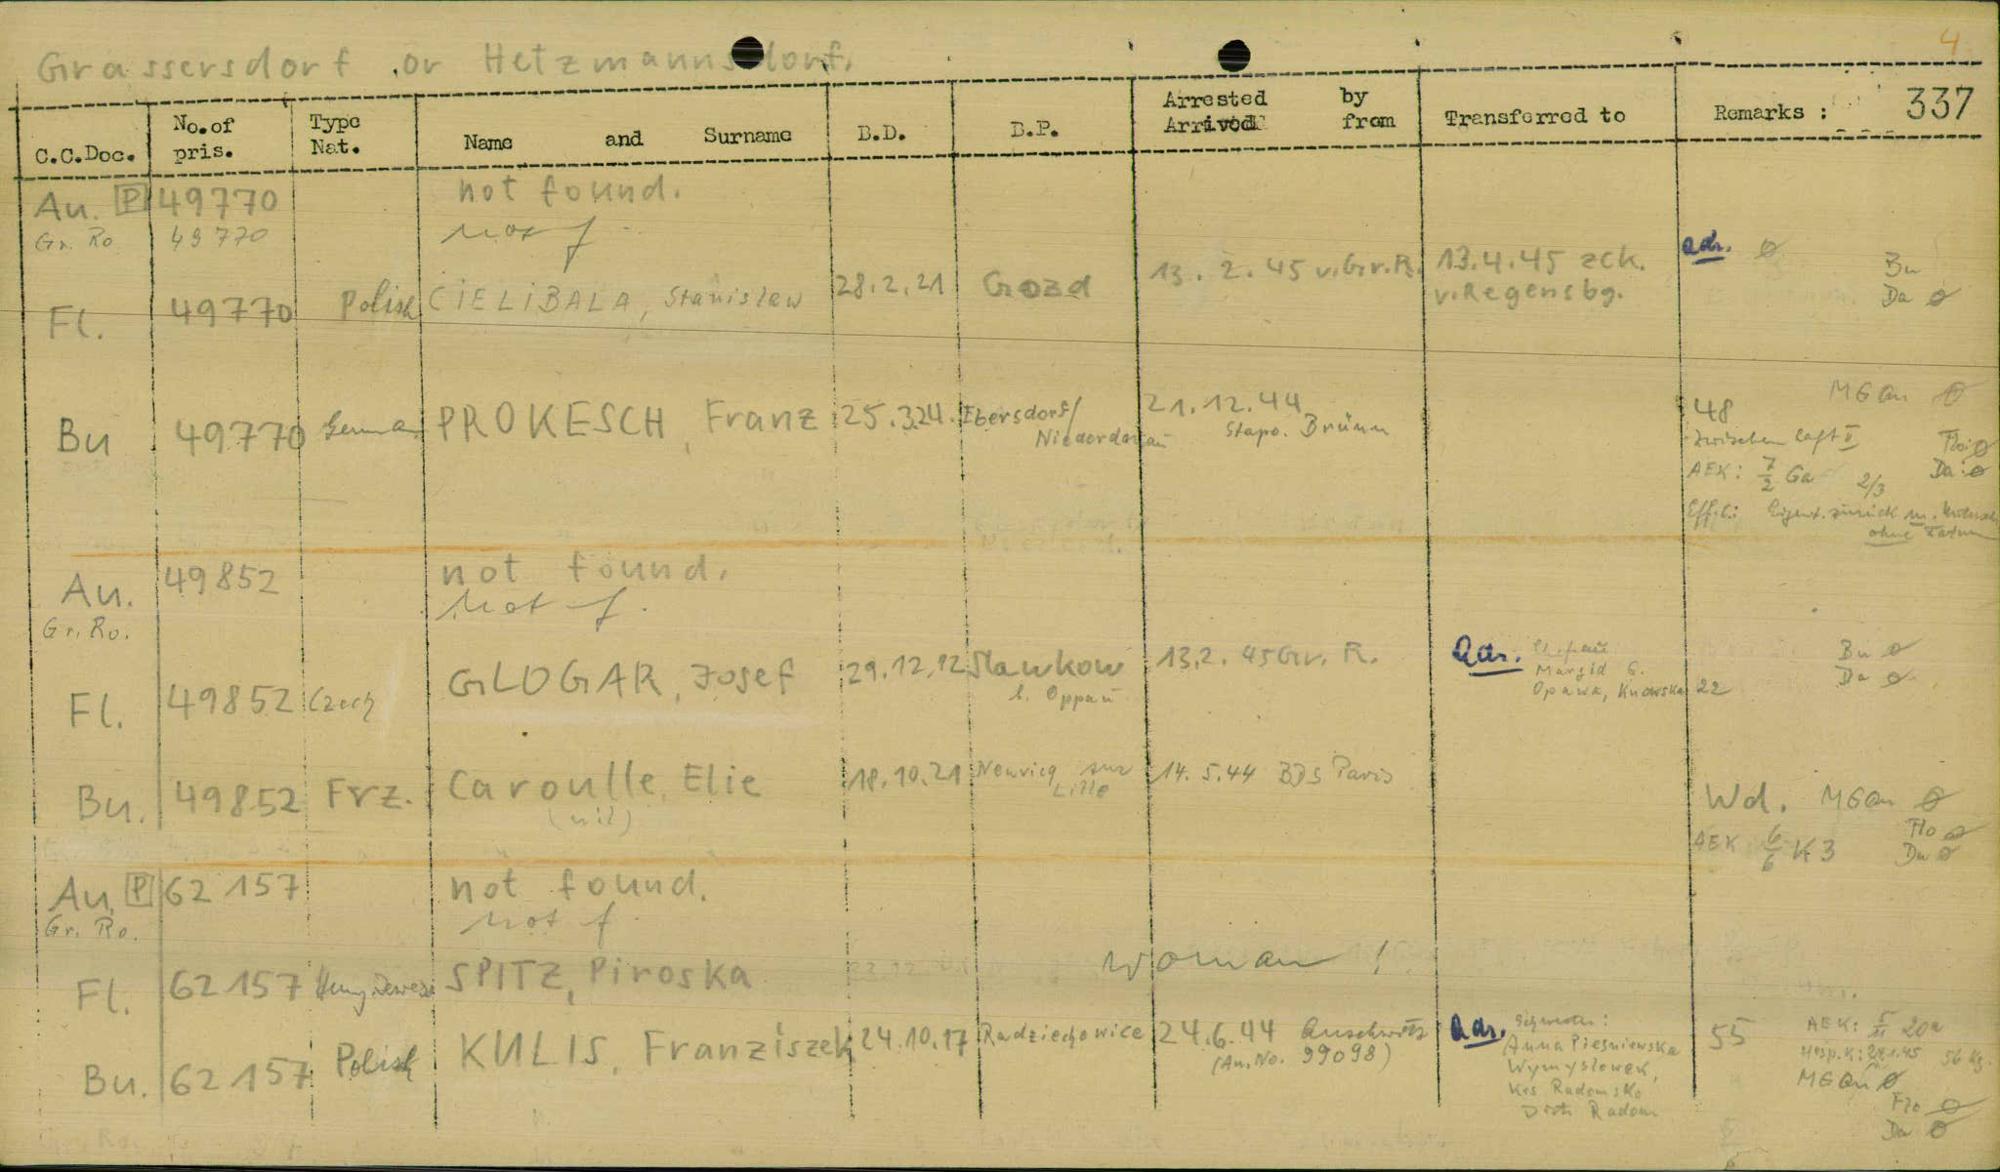 4
Grassersdorf or Hetzmannsdorf.
C.C.Doc. No.of pris. Type Nat. Name and Surname B.D. B.P. Arrested by Arrived from Transferred to Remarks : 337
Au. P 49770 not found.
Gr. Ro 49770 not f.
Fl. 49770 Polish CIELIBALA, Stanislaw 28.2.21 Gozd 13. 2. 45 v.Gr.R. 13.4.45 zck. adr. ø Bu
v.Regensbg. Da ø
Bu 49770 German PROKESCH, Franz 25.3.24. Ebersdorf/ 21.12.44 48 MGAu ø
Niederdonau Stapo. Brünn Zwischen Flo: ø
AEK: 7/2 Ga 2/3 Da: ø
Eigent. zurück
ohne Datum
Au. 49852 not found.
Gr. Ro. not f.
Fl. 49852 Czech GLOGAR, Josef 29.12.12 Slawkow 13.2. 45 Gr. R. Adr. Bu ø
b. Oppau Margid G. Da ø
Opawa, 22
Bu. 49852 Frz. Caroulle, Elie 18.10.21 sur Lille 14. 5.44 BDS Paris Wd. MGAu ø
(nil) Flo ø
AEK 6/6 K3 Da ø
Au. P 62 157 not found.
Gr. Ro. not f.
woman !
Fl. 62 157 SPITZ, Piroska
Bu. 62 157 Polish KULIS, Franziszek 24.10.17 Radziechowice 24.6.44 Auschwitz Adr. Schwester: 55 AEK: 5/11 20a
(Au.No. 99098) Anna Piesniewska Hosp.K: 56 kg.
Wymyslowek, MGAu ø
Krs Radomsko Flo ø
Distr Radom Da ø